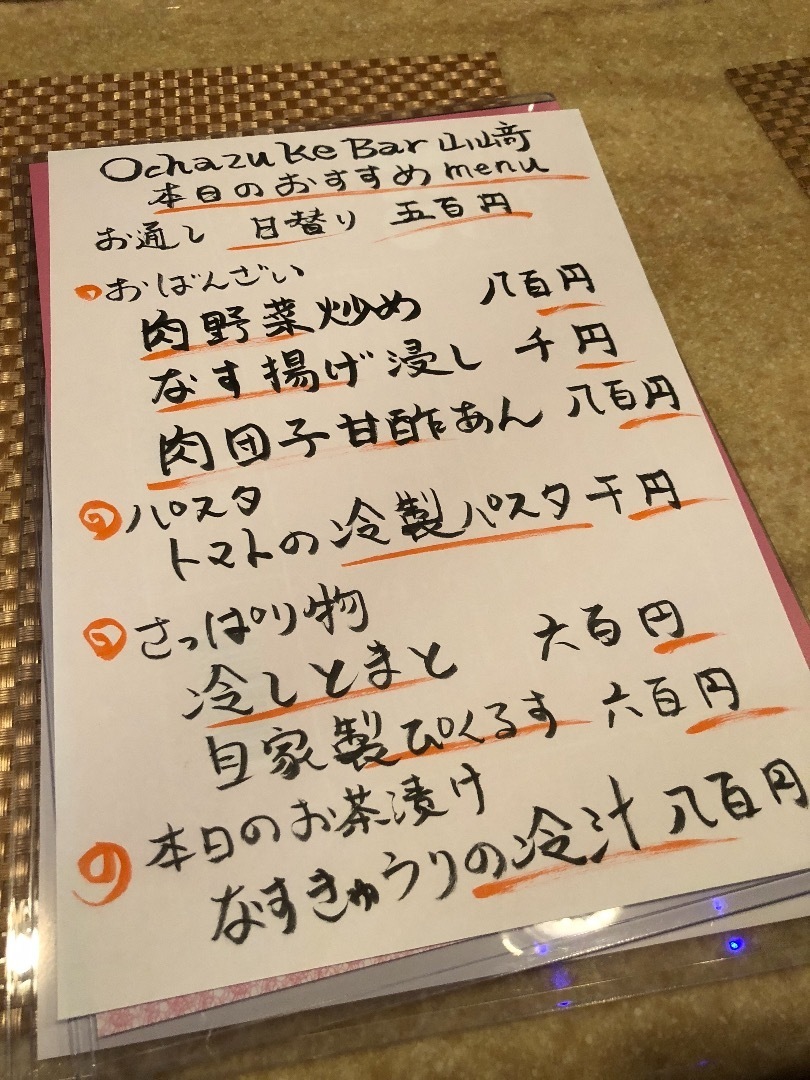 Ochazuke Bar 山﨑
本日のおすすめmenu
お通し 日替り 五百円
おばんざい
肉野菜炒め 八百円
なす揚げ浸し 千円
肉団子甘酢あん 八百円
パスタ
トマトの冷製パスタ 千円
さっぱり物
冷しとまと 六百円
自家製ぴくるす 六百円
本日のお茶漬け
なすきゅうりの冷汁 八百円